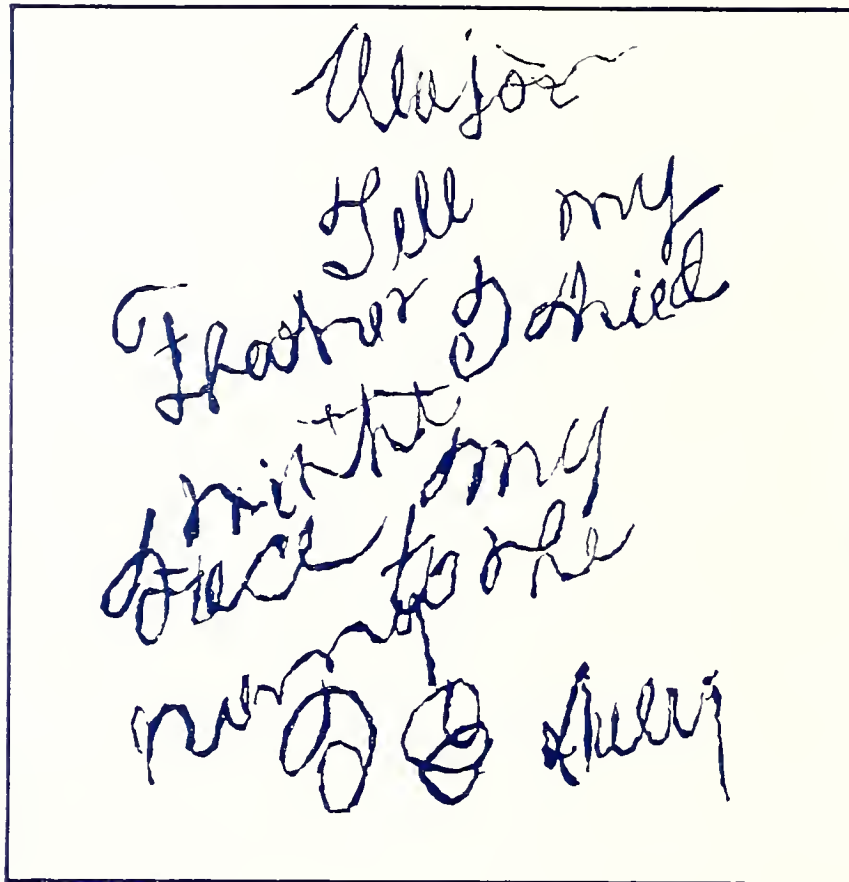 Major
Tell my
Father I died
with my
face to the
enemy
I E Avery